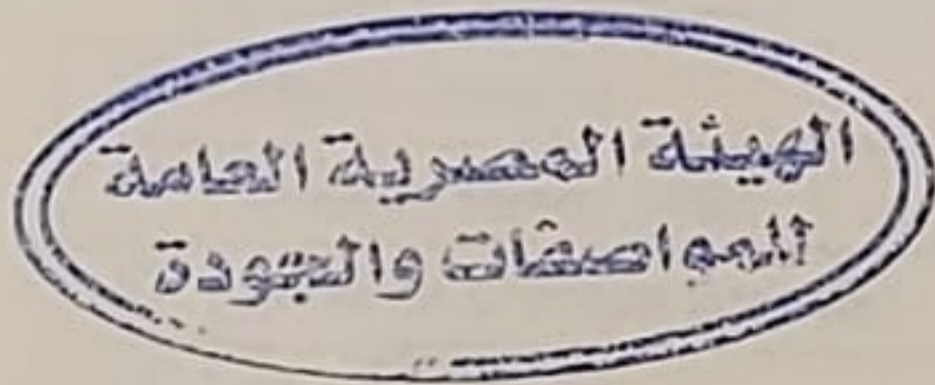 الهيئة المصرية العامة
للمواصفات والجودة